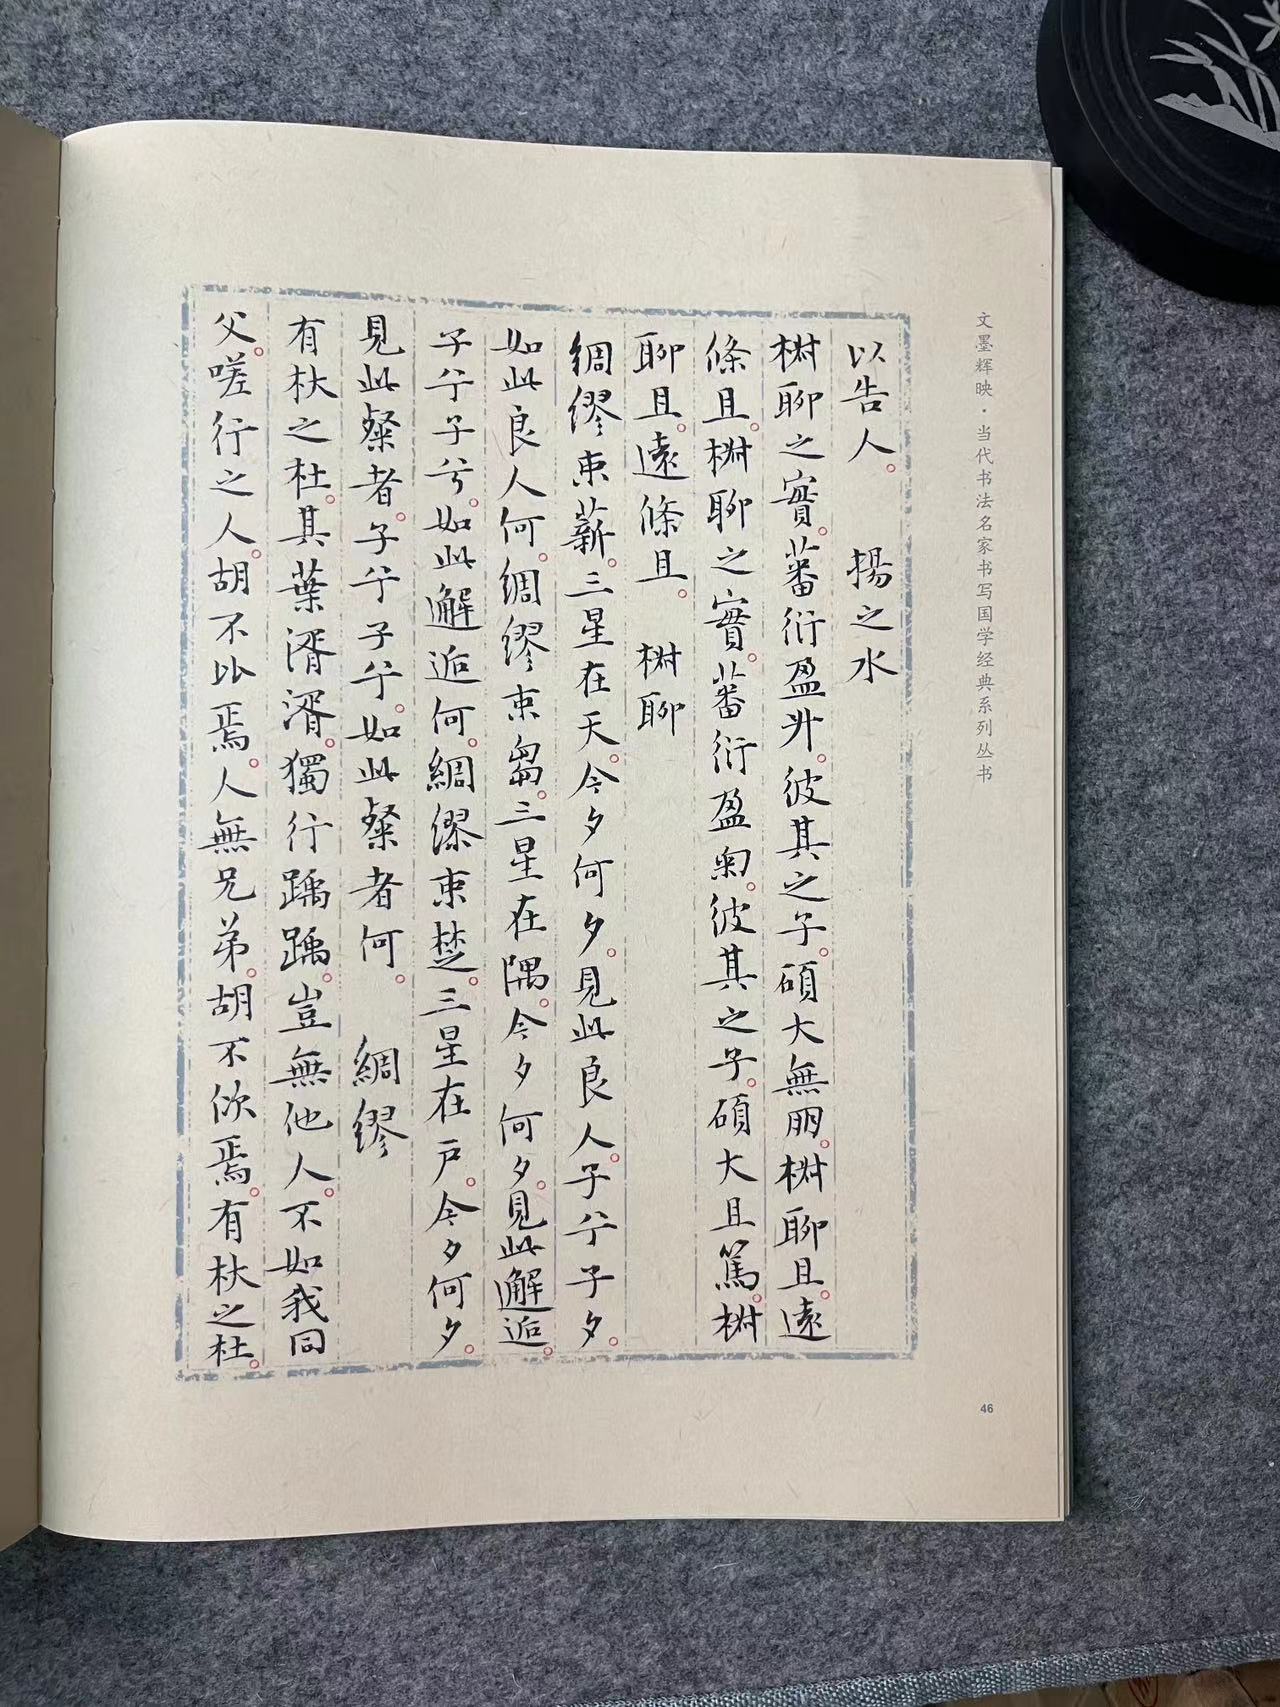 文墨辉映·当代书法名家书写国学经典系列丛书
以告人。 揚之水
椒聊之實。蕃衍盈升。彼其之子。碩大無朋。椒聊且。遠
條且。椒聊之實。蕃衍盈匊。彼其之子。碩大且篤。椒
聊且。遠條且。 椒聊
綢繆束薪。三星在天。今夕何夕。見此良人。子兮子夕。
如此良人何。綢繆束芻。三星在隅。今夕何夕。見此邂逅。
子兮子兮。如此邂逅何。綢繆束楚。三星在戸。今夕何夕。
見此粲者。子兮子兮。如此粲者何。 綢繆
有杕之杜。其葉湑湑。獨行踽踽。豈無他人。不如我同
父。嗟行之人。胡不比焉。人無兄弟。胡不佽焉。有杕之杜。
46